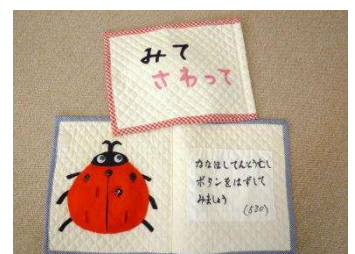 みて
さわって
ななほしてんとうむし
ボタンをはずして
みましょう
(530)